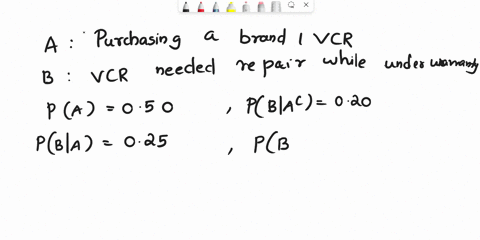 A : Purchasing a brand 1 VCR
B : VCR needed repair while under warranty
P(A) = 0.50 , P(B|Aᶜ) = 0.20
P(B|A) = 0.25 , P(B